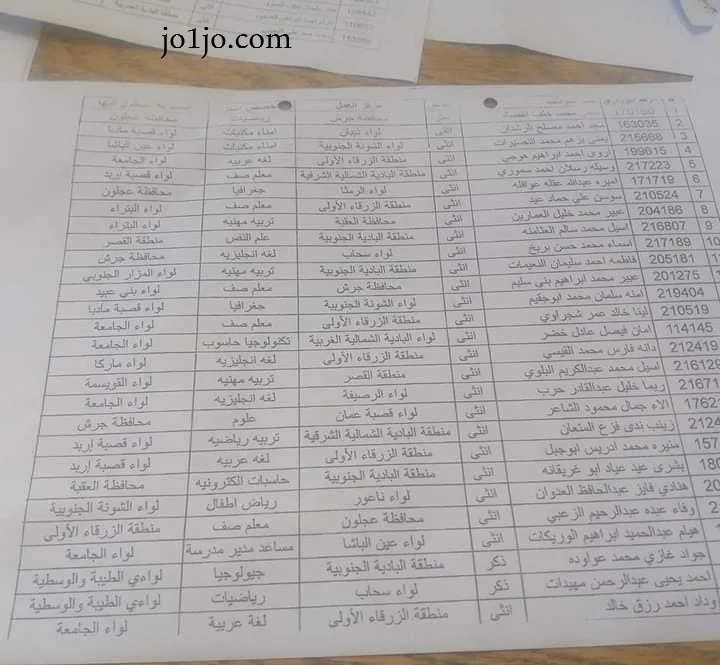 jo1jo.com
محافظة جرش رياضيات محافظة عجلون
2 163035 احمد مصلح الرشدان انثى لواء ذيبان امناء مكتبات لواء قصبة مادبا
3 215668 محمد النصيرات انثى لواء الشونة الجنوبية امناء مكتبات لواء عين الباشا
4 199615 اروى احمد ابراهيم انثى منطقة الزرقاء الأولى لغه عربيه لواء الجامعة
5 217223 وسيله رسلان احمد سموري انثى منطقة البادية الشمالية الشرقية معلم صف لواء قصبة إربد
6 171719 اميره عبدالله عقله عواقله انثى لواء الرمثا جغرافيا محافظة عجلون
7 210524 سوسن علي حماد عيد انثى منطقة الزرقاء الأولى معلم صف لواء البتراء
8 204186 عبير محمد خليل العمارين انثى محافظة العقبة تربيه مهنيه لواء البتراء
9 216807 اسيل محمد سالم العثامنه انثى منطقة البادية الجنوبية علم النفس منطقة القصر
10 217189 اسماء محمد حسن بريخ انثى لواء سحاب لغه انجليزيه محافظة جرش
205181 فاطمه احمد سليمان النعيمات انثى منطقة البادية الجنوبية تربيه مهنيه لواء المزار الجنوبي
201275 عبير محمد ابراهيم بني سليم انثى محافظة جرش معلم صف لواء بني عبيد
219404 امنه سلمان محمد ابوجقيم انثى لواء الشونة الجنوبية جغرافيا لواء قصبة مادبا
210519 لينا خالد عمر شجراوي انثى منطقة الزرقاء الأولى معلم صف لواء الجامعة
114145 امان فيصل عادل خضر انثى لواء البادية الشمالية الغربية تكنولوجيا حاسوب لواء الجامعة
212419 دانه فارس محمد القيسي انثى منطقة الزرقاء الأولى لغه انجليزيه لواء ماركا
216129 اسيل محمد عبدالكريم البلوي انثى منطقة القصر تربيه مهنيه لواء القويسمة
21671 ريما خليل عبدالقادر حرب انثى لواء الرصيفة لغه انجليزيه لواء الجامعة
1762 الاء جمال محمود الشاعر انثى لواء قصبة عمان علوم محافظة جرش
2124 زينب ندى فزع المتعان انثى منطقة البادية الشمالية الشرقية تربيه رياضيه لواء قصبة إربد
157 منيره محمد ادريس ابوجبل انثى منطقة الزرقاء الأولى لغه عربيه لواء قصبة إربد
180 بشرى عيد عياد ابو غريقانه انثى منطقة البادية الجنوبية حاسبات الكترونيه محافظة العقبة
2 هنادي فايز عبدالحافظ العدوان انثى لواء ناعور رياض اطفال لواء الشونة الجنوبية
وفاء عبده عبدالرحيم الزعبي انثى محافظة عجلون معلم صف منطقة الزرقاء الأولى
هيام عبدالحميد ابراهيم الوريكات انثى لواء عين الباشا مساعد مدير مدرسة لواء الجامعة
جواد غازي محمد عواوده ذكر منطقة البادية الجنوبية جيولوجيا لواءي الطيبة والوسطية
احمد يحيى عبدالرحمن مهيدات ذكر لواء سحاب رياضيات لواءي الطيبة والوسطية
وداد احمد رزق خالد انثى منطقة الزرقاء الأولى لغة عربية لواء الجامعة